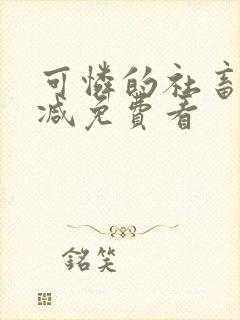 可憐的社畜
减免費看
銘笑